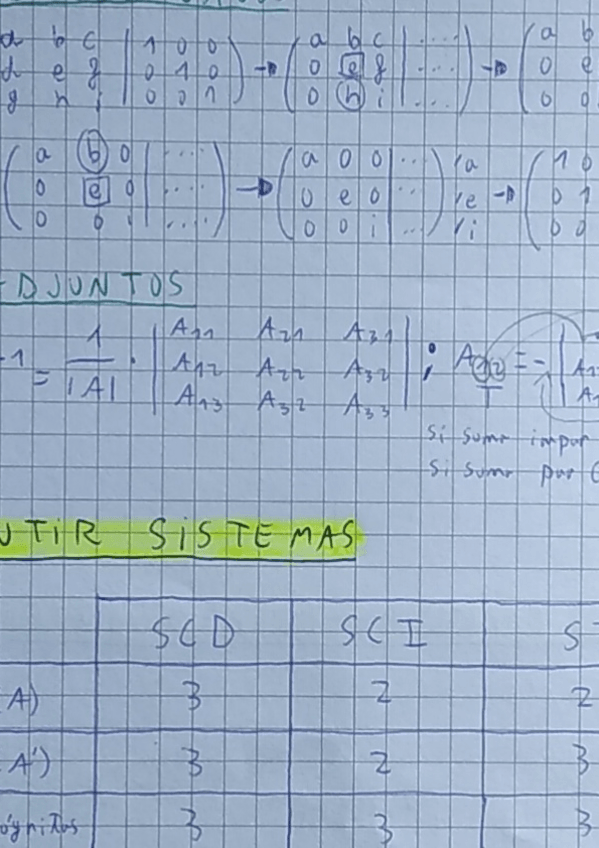 a b c | 1 0 0
d e g | 0 1 0
g h i | 0 0 1
→
a b c | ....
0 e g | ....
0 h i | ....
→
a b
0 e
0 0
a b 0 | ....
0 e 0 | ....
0 0 i | ....
→
a 0 0 | .. /a
0 e 0 | .. /e
0 0 i | .. /i
→
1 0
0 1
0 0
DJUNTOS
-1 = 1/|A| · | A11 A21 A31 | ; A12 = -
A12 A22 A32
A13 A32 A33
T
si suma impar
si suma par
UTiR SiSTEMAS
SCD SCI S
A) 3 2 2
A') 3 2 3
ógnitas 3 3 3